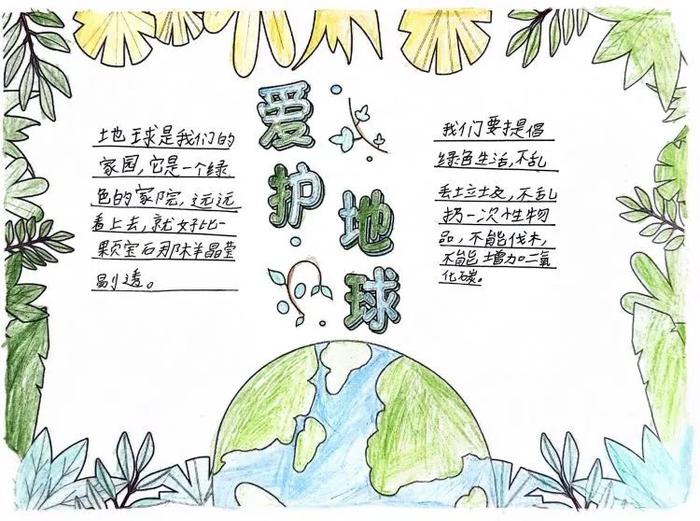 爱护
地球
地球是我们的
家园，它是一个绿
色的家院，远远
看上去，就好比一
颗宝石那样晶莹
剔透。
我们要提倡
绿色生活，不乱
丢垃圾，不乱
扔一次性物
品，不能伐木，
不能增加二氧
化碳。